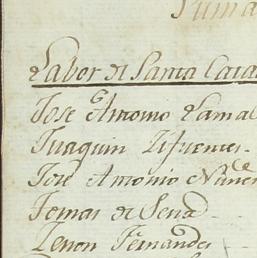 Suma
Labor de Santa Cata
Jose Antonio Lamal
Juaquin Sifuentes
Jose Antonio
Tomas de Sena
Zenon Fernandes